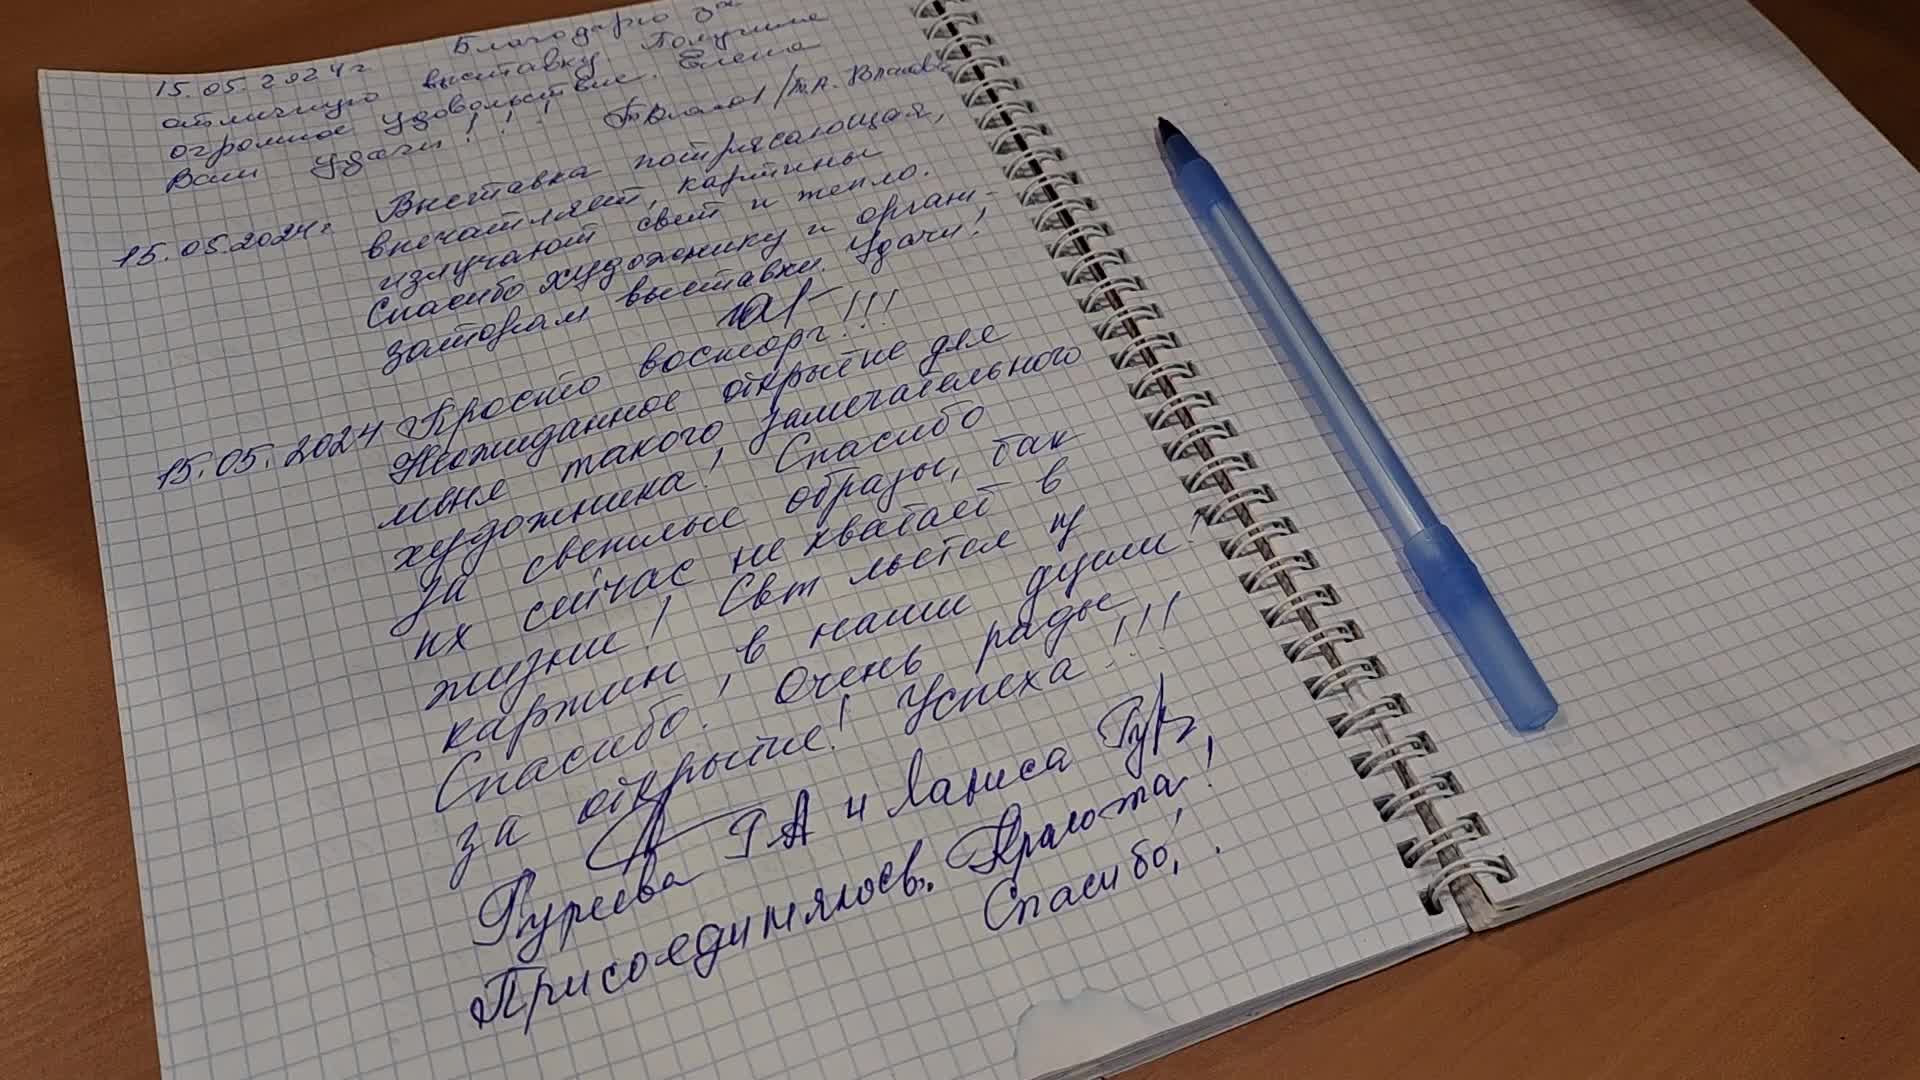 15.05.2024г. Благодарю за
отличную выставку. Получила
огромное удовольствие.
Вам удачи!!!
15.05.2024г. Выставка потрясающая,
впечатляет, картины
излучают свет и тепло.
Спасибо художнику и органи-
заторам выставки. Удачи!
15.05.2024 Просто восторг!!!
Неожиданное открытие для
меня такого замечательного
художника! Спасибо
за светлые образы, так
их сейчас не хватает в
жизни! Свет льется из
картин в наши души!
Спасибо! Очень рады
за открытие! Успеха!!!
РА и Лариса
Присоединяюсь. Красота!
Спасибо!